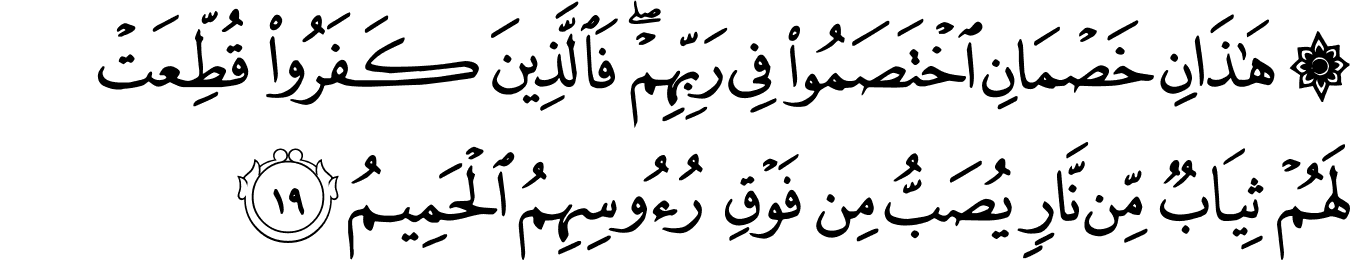 ۞ هَـٰذَانِ خَصْمَانِ ٱخْتَصَمُوا۟ فِى رَبِّهِمْ ۖ فَٱلَّذِينَ كَفَرُوا۟ قُطِّعَتْ
لَهُمْ ثِيَابٌ مِّن نَّارٍ يُصَبُّ مِن فَوْقِ رُءُوسِهِمُ ٱلْحَمِيمُ ١٩